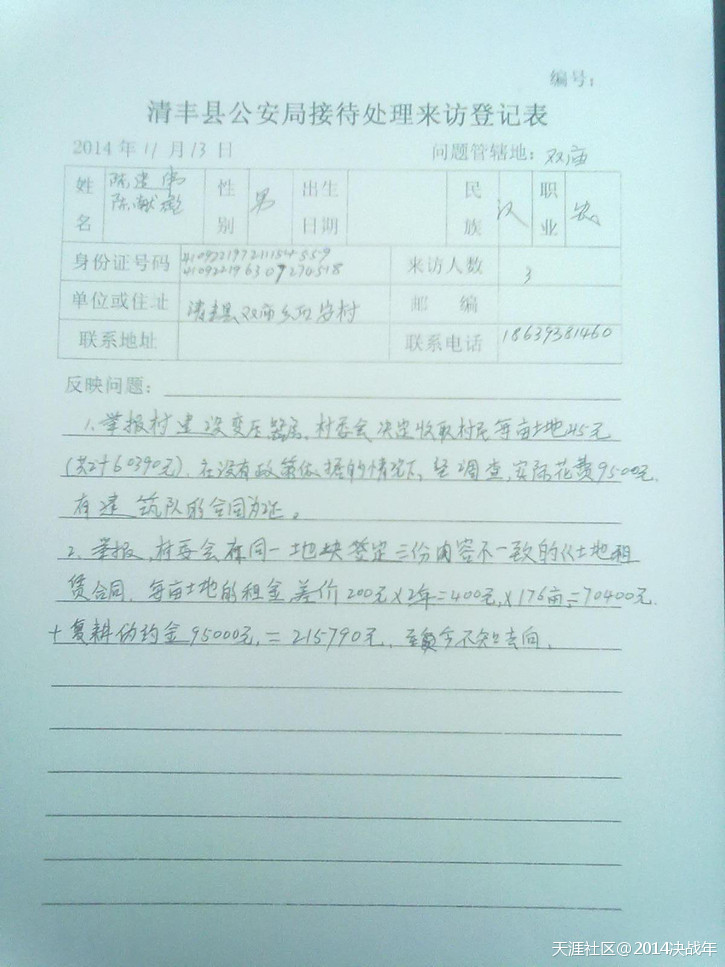 编号：
清丰县公安局接待处理来访登记表
2014 年 11 月 13 日 问题管辖地：双庙
姓名 陈建 性别 男 出生日期 民族 汉 职业 农
陈献
身份证号码 来访人数 3
单位或住址 清丰县双庙乡 村 邮 编
联系地址 联系电话 18639381460
反映问题：
1、举报村建设变压器，村委会决定收取村民每亩土地45元
（共计60390元）。在没有政策依据的情况下，经调查，实际花费9500元，
有建筑队的合同为证。
2、举报，村委会在同一地块签定三份内容不一致的《土地租
赁合同，每亩土地的租金差价200元×2年=400元，×176亩=70400元
+复耕伪约金95000元，=215790元，至今不知去向。
天涯社区@2014决战年